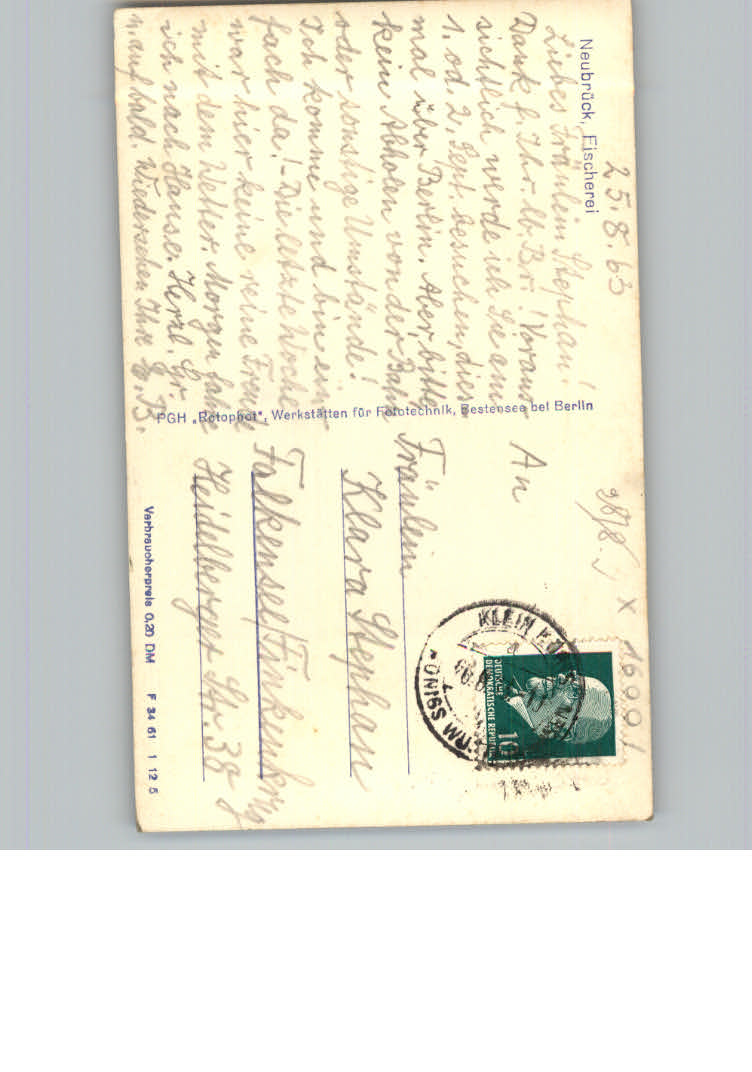 Neubrück, Fischerei
25.8.63
Liebes Fräulein Stephan!
Dank f. Ihr. lb. Br.! Voraus-
sichtlich werde ich Sie am
1. od. 2. Sept. besuchen, dies-
mal über Berlin. Aber, bitte
kein Abholen von der Bahn
oder sonstige Umstände!
Ich komme und bin ein-
fach da! - Die letzte Woche
war hier keine reine Freude
mit dem Wetter. Morgen fahre
ich nach Hause. Herzl. Gr.
u. auf bald. Wiedersehen Ihre E. B.
PGH „Rotophot", Werkstätten für Fototechnik, Bestensee bei Berlin
28/8.
X 16991
KLEIN KÖRIS
KÖNIGS WUSTERHAUSEN
DEUTSCHE
DEMOKRATISCHE REPUBLIK
10
An
Fräulein
Klara Stephan
Falkensee/Finkenkrug
Heidelberger Str. 38
Verbraucherpreis 0,20 DM F 34 61 1 12 5